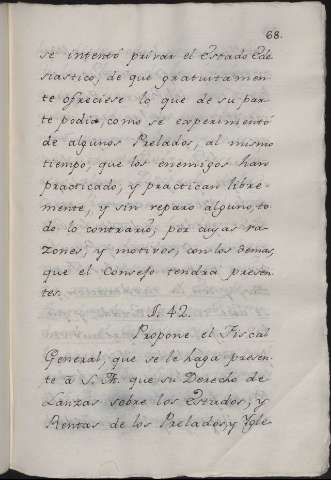 68.
se intentó privar el Estado Ecle
siastico, de que gratuitamen
te ofreciese lo que de su par
te podia, como se experimentó
de algunos Prelados, al mismo
tiempo, que los enemigos han
practicado, y practican libre-
mente, y sin reparo alguno, to
do lo contrario; por cuyas ra-
zones, y motivos, con los demas,
que el Consejo tendrá presen
tes.
§. 42.
Propone el Fiscal
General, que se le haga presen
te á S. A. que su Derecho de
Lanzas sobre los Estados, y
Rentas de los Prelados, y Ygle-